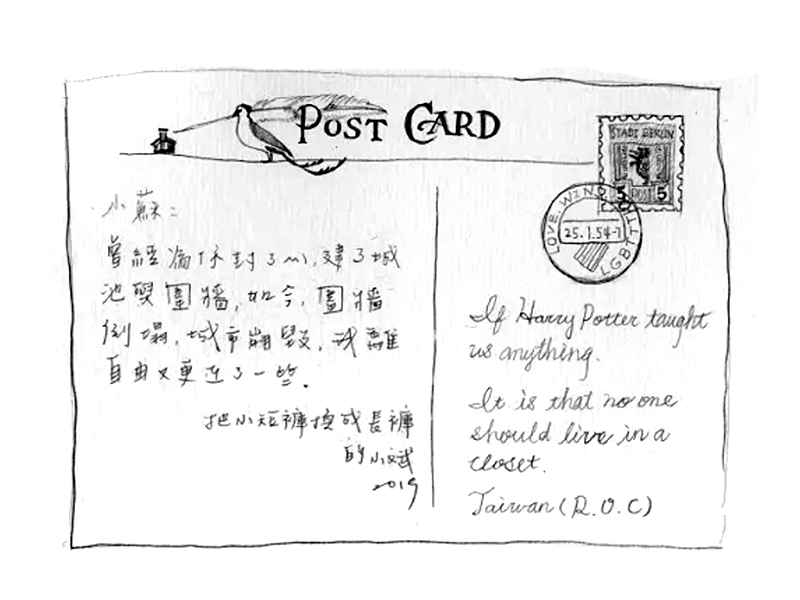 POST CARD
STADT BERLIN
5 POST 5
LOVE
25.1.54-
小蘇:
曾經為你封了,建了城
池與圍牆,如今,圍牆
倒塌,城市崩毀,我離
自由又更近了一些.
把小短褲換成長褲
的小斌
2019
If Harry Potter taught
us anything.
It is that no one
should live in a
closet.
Taiwan (R.O.C)